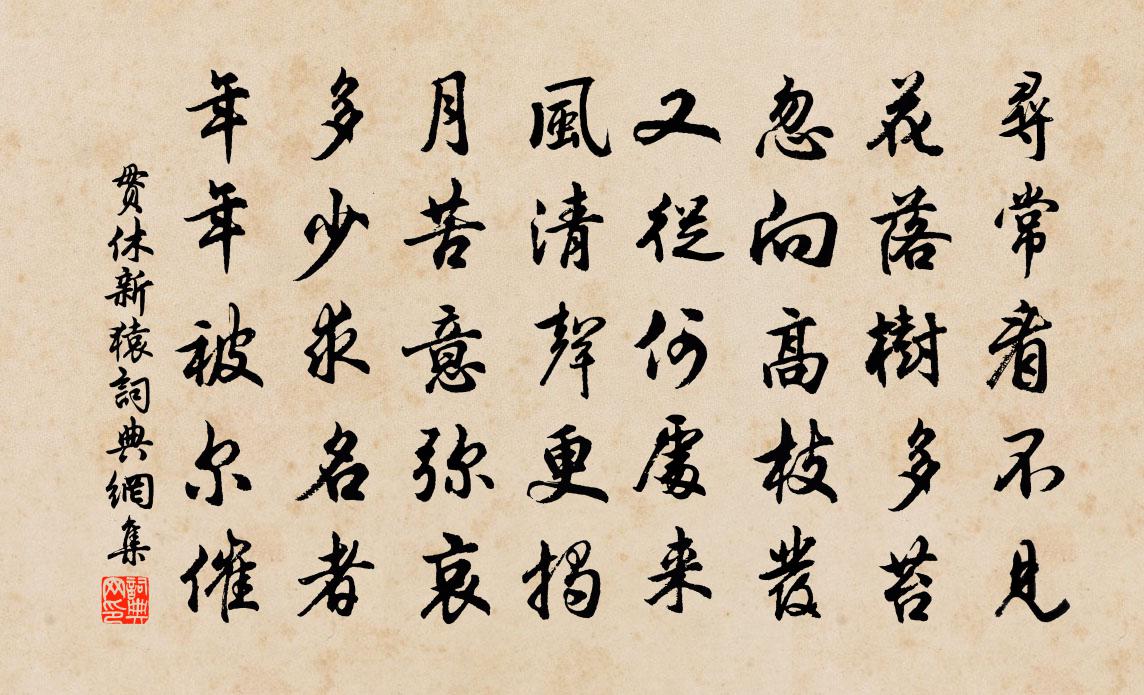 尋常看不見
花落樹多苔
忽向高枝發
又從何處来
風清聲更揭
月苦意弥哀
多少求名者
年年被尔催
貫休新猿詞典網集
詞典网印